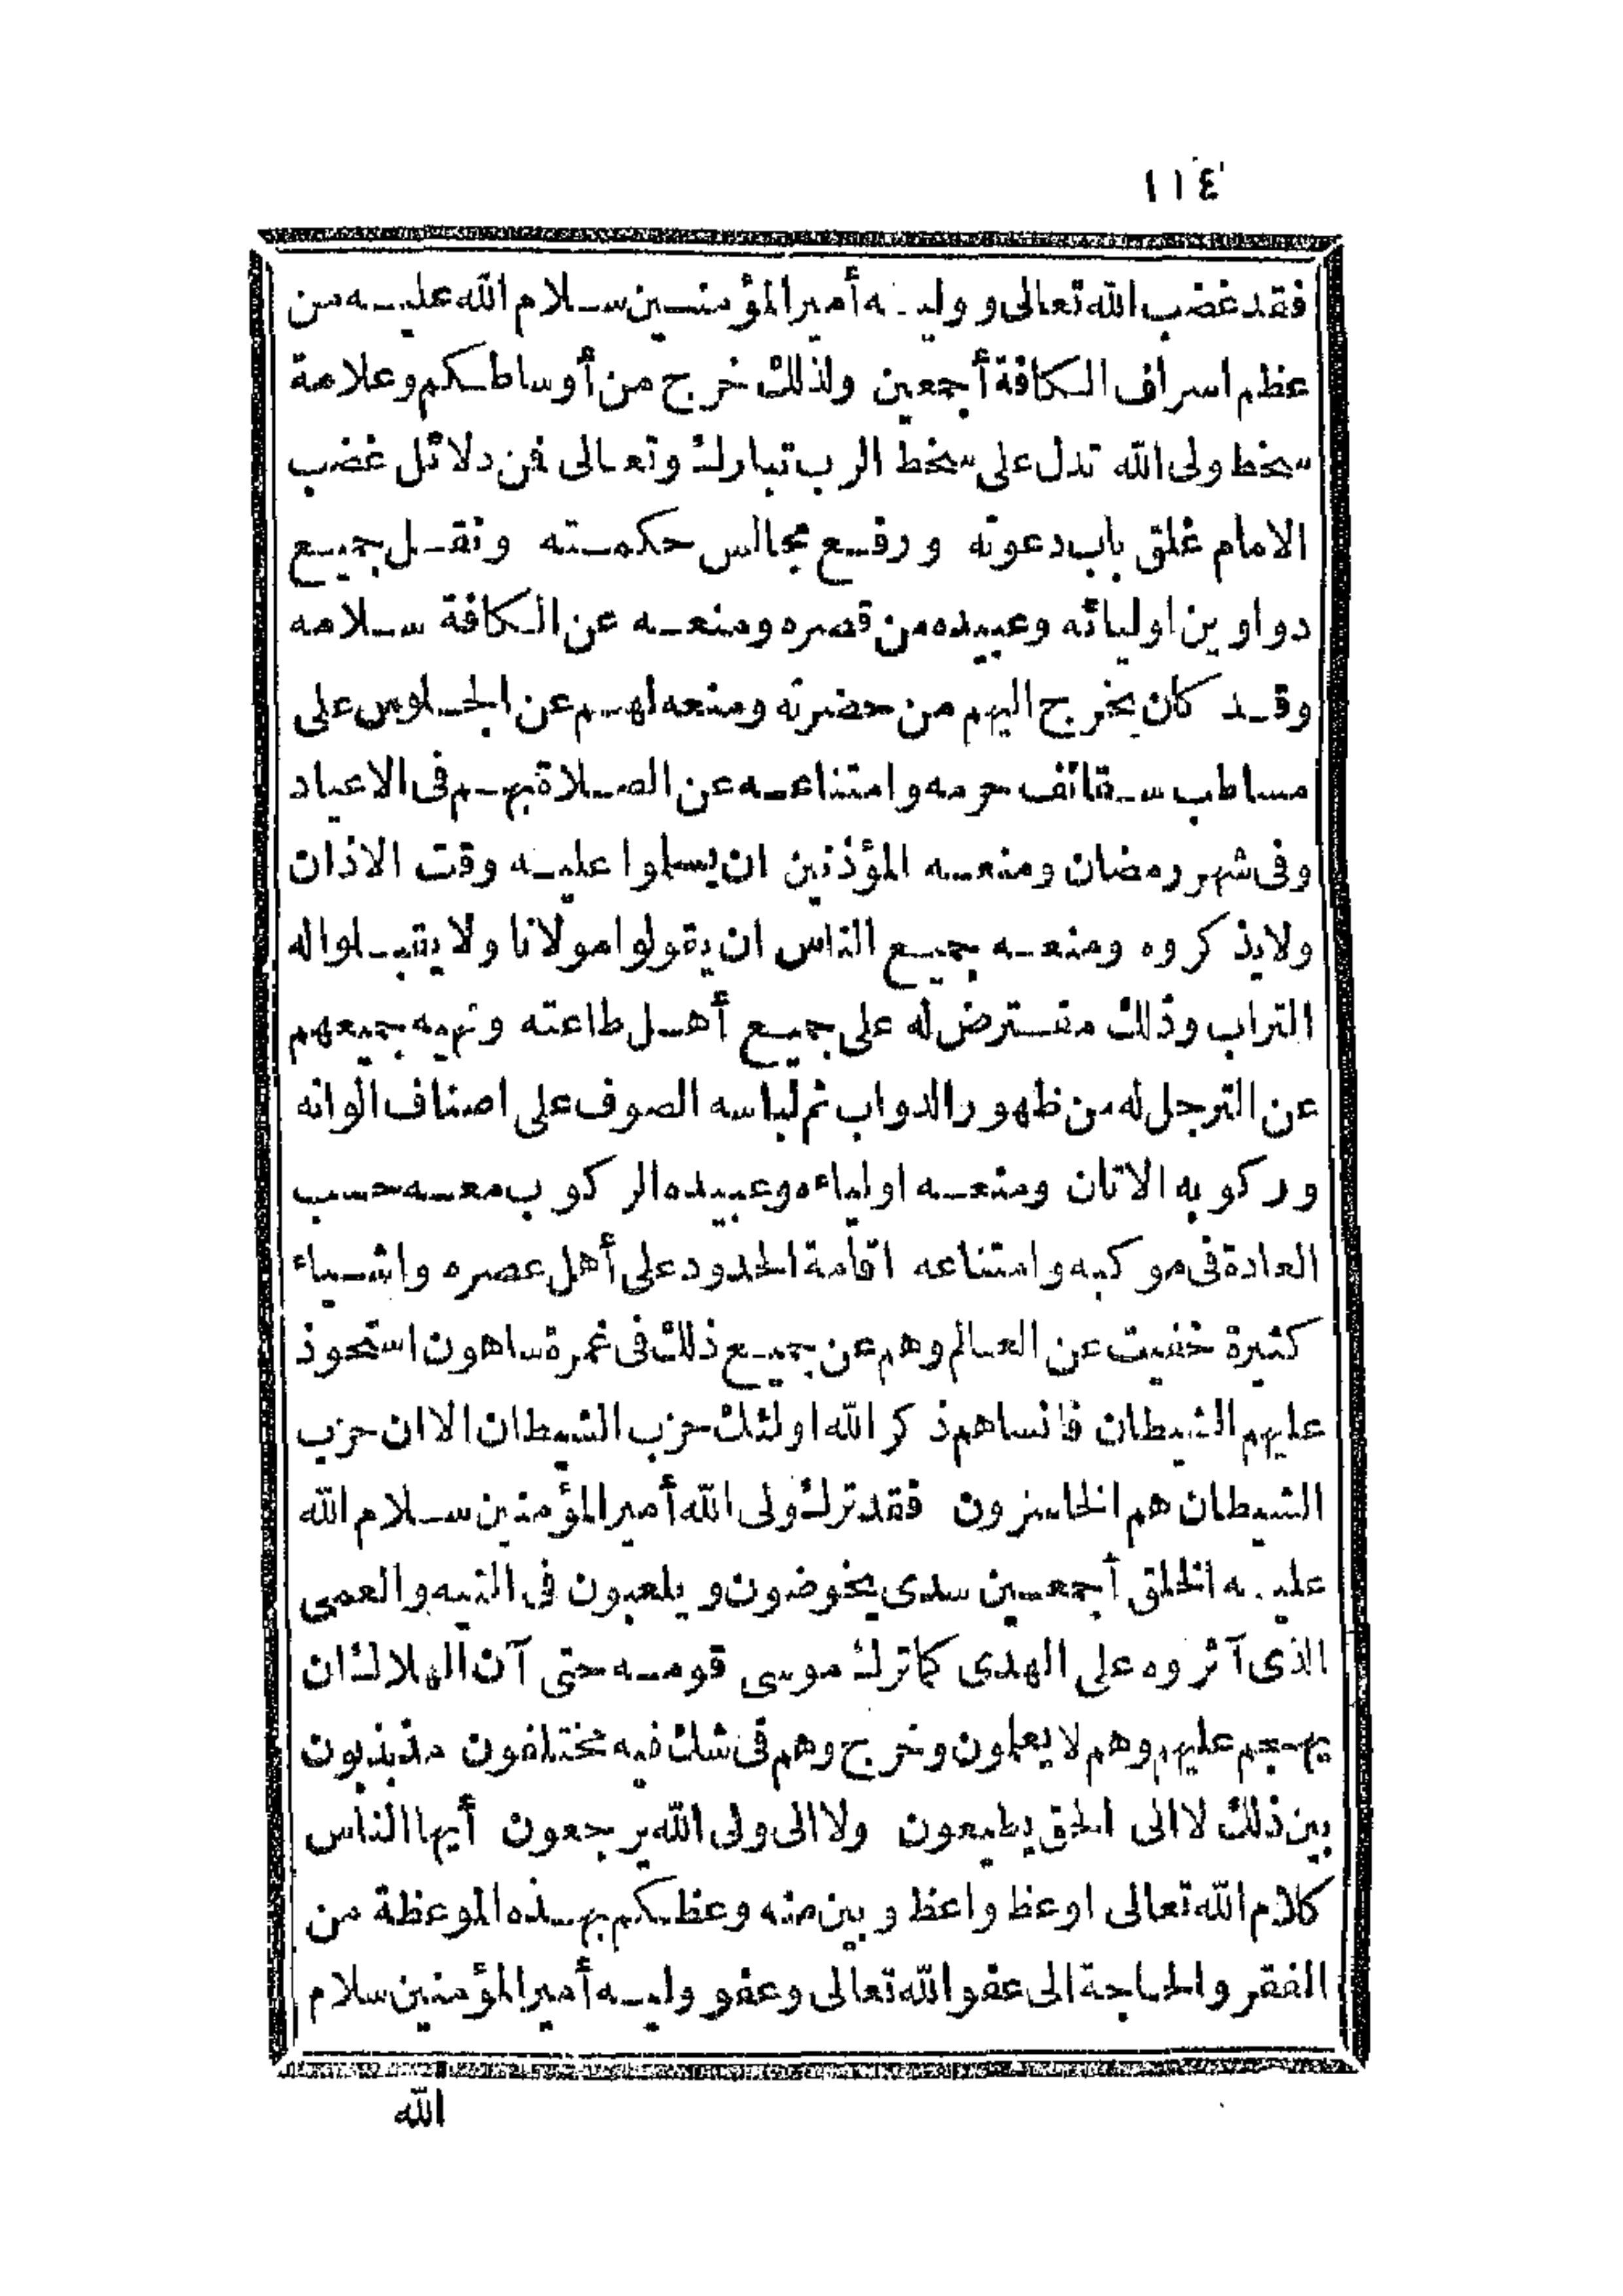 ١١٤
فقد غضب الله تعالى ووليه أمير المؤمنين سلام الله عليه من
عظم اسراف الكافة أجمعين ولذلك خرج من أوساطكم وعلامة
سخط ولى الله تدل على سخط الرب تبارك وتعالى فمن دلائل غضب
الامام غلق باب دعوته ورفع مجالس حكمته ونقل جميع
دواوين اوليائه وعبيده من قصره ومنعه عن الكافة سلامه
وقد كان يخرج اليهم من حضرته ومنعه لهم عن الجلوس على
مساطب سقائف حرمه وامتناعه عن الصلاة بهم فى الاعياد
وفى شهر رمضان ومنعه المؤذنين ان يسلموا عليه وقت الاذان
ولا يذكروه ومنعه جميع الناس ان يقولوا مولانا ولا يقبلوا له
التراب وذلك مفترض له على جميع أهل طاعته ونهيه جميعهم
عن الترجل له من ظهور الدواب ثم لباسه الصوف على اصناف الوانه
وركوبه الاتان ومنعه اولياءه وعبيده الركوب معه حسب
العادة فى موكبه وامتناعه اقامة الحدود على أهل عصره واشياء
كثيرة خفيت عن العالم وهم عن جميع ذلك فى غمرة ساهون استحوذ
عليهم الشيطان فانساهم ذكر الله اولئك حزب الشيطان الا ان حزب
الشيطان هم الخاسرون فقد ترك ولى الله أمير المؤمنين سلام الله
عليه الخلق أجمعين سدى يخوضون ويلعبون فى التيه والعمى
الذى آثروه على الهدى كما ترك موسى قومه حتى آن الهلاك ان
يهجم عليهم وهم لا يعلمون وخرج وهم فى شك فيه مختلفون مذبذبون
بين ذلك لا الى الحق يطيعون ولا الى ولى الله يرجعون أيها الناس
كلام الله تعالى اوعظ واعظ وبين منه وعظكم بهذه الموعظة من
الفقر والحاجة الى عفو الله تعالى وعفو وليه أمير المؤمنين سلام
الله